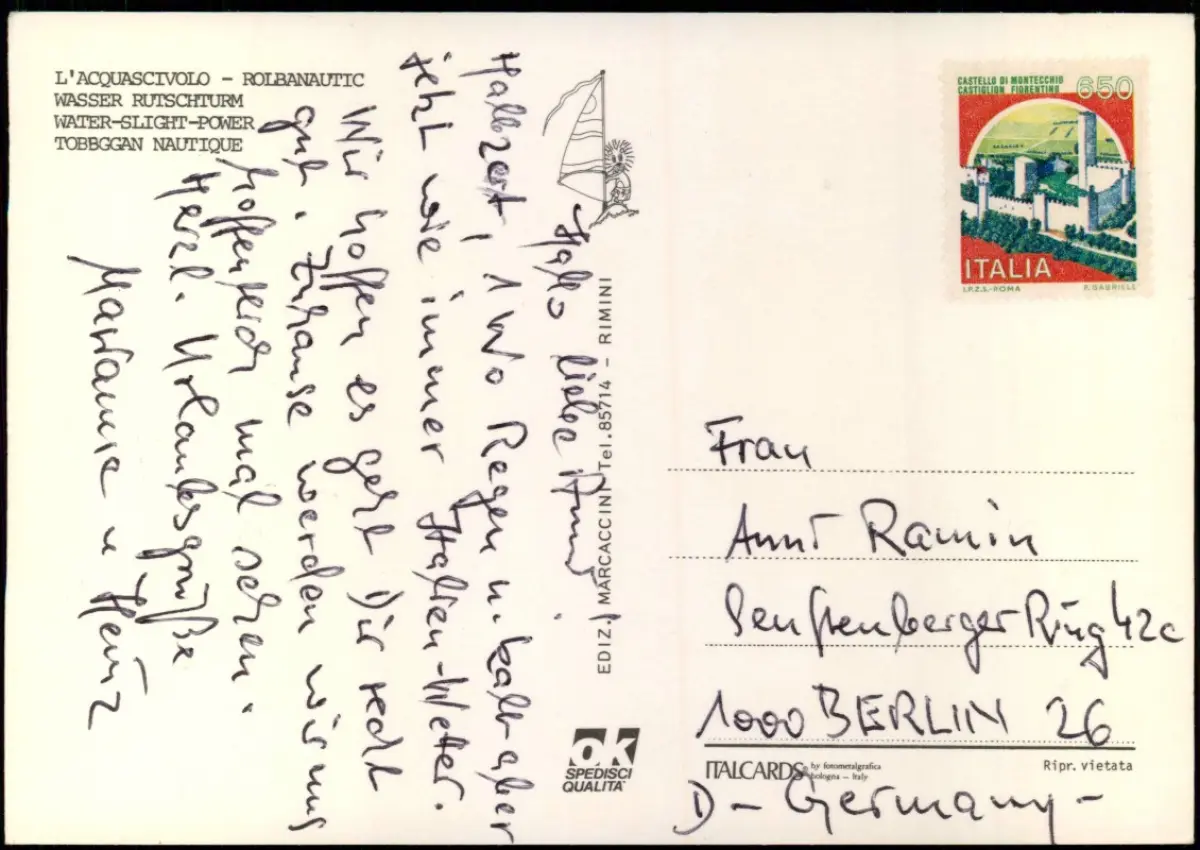 L'ACQUASCIVOLO - ROLBANAUTIC
WASSER RUTSCHTURM
WATER-SLIGHT-POWER
TOBBGGAN NAUTIQUE
Hallo liebe Anni!
Halbzeit, 1 Wo Regen u. kalt - aber
jetzt wie immer Italien-Wetter.
Wir hoffen es geht Dir recht
gut. Zuhause werden wir uns
hoffentlich mal sehen.
Herzl. Urlaubsgrüße
Marianne u Heinz
EDIZ. MARCACCINI Tel. 85714 - RIMINI
OK
SPEDISCI
QUALITA'
CASTELLO DI MONTECCHIO
CASTIGLION FIORENTINO
650
ITALIA
I.P.Z.S.-ROMA
F. GABRIELE
Frau
Anni Ramin
Senftenberger Ring 42c
1000 BERLIN 26
ITALCARDS by fotometalgrafica
bologna - Italy
Ripr. vietata
D - Germany -